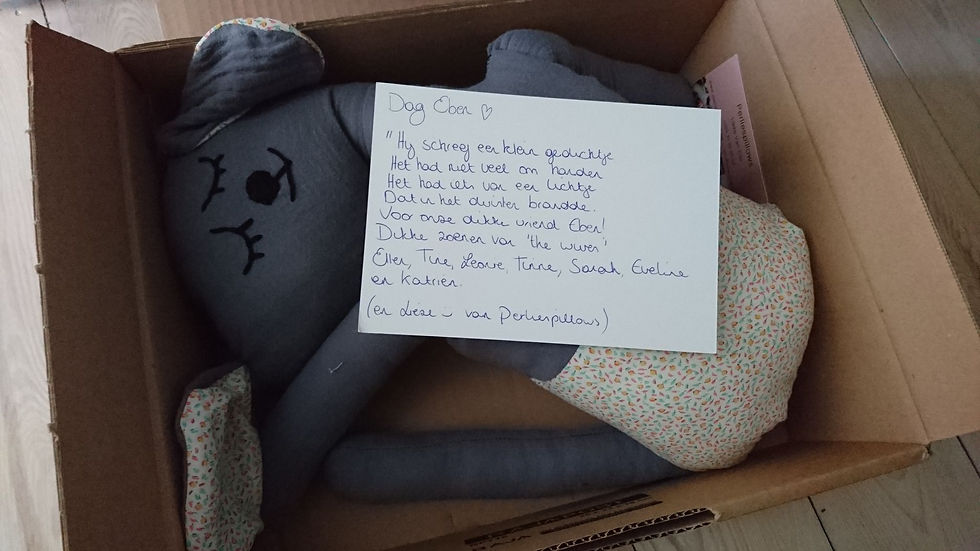 Dag Eben ♡
"Hij schreef een klein gedichtje
Het had niet veel om handen
Het had iets van een lichtje
Dat in het duister brandde.
Voor onze dikke vriend Eben!
Dikke zoenen van 'the wives'
Ellen, Tine, Leonie, Tinne, Sarah, Eveline
en Katrien.
(en Liese van Pertiespillows)
Pertiespillows